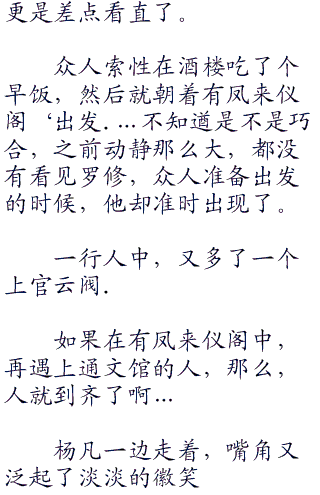 更是差点看直了。
众人索性在酒楼吃了个
早饭，然后就朝着有凤来仪
阁‘出发....不知道是不是巧
合，之前动静那么大，都没
有看见罗修，众人准备出发
的时候，他却准时出现了。
一行人中，又多了一个
上官云阀.
如果在有凤来仪阁中，
再遇上通文馆的人，那么，
人就到齐了啊...
杨凡一边走着，嘴角又
泛起了淡淡的徽笑